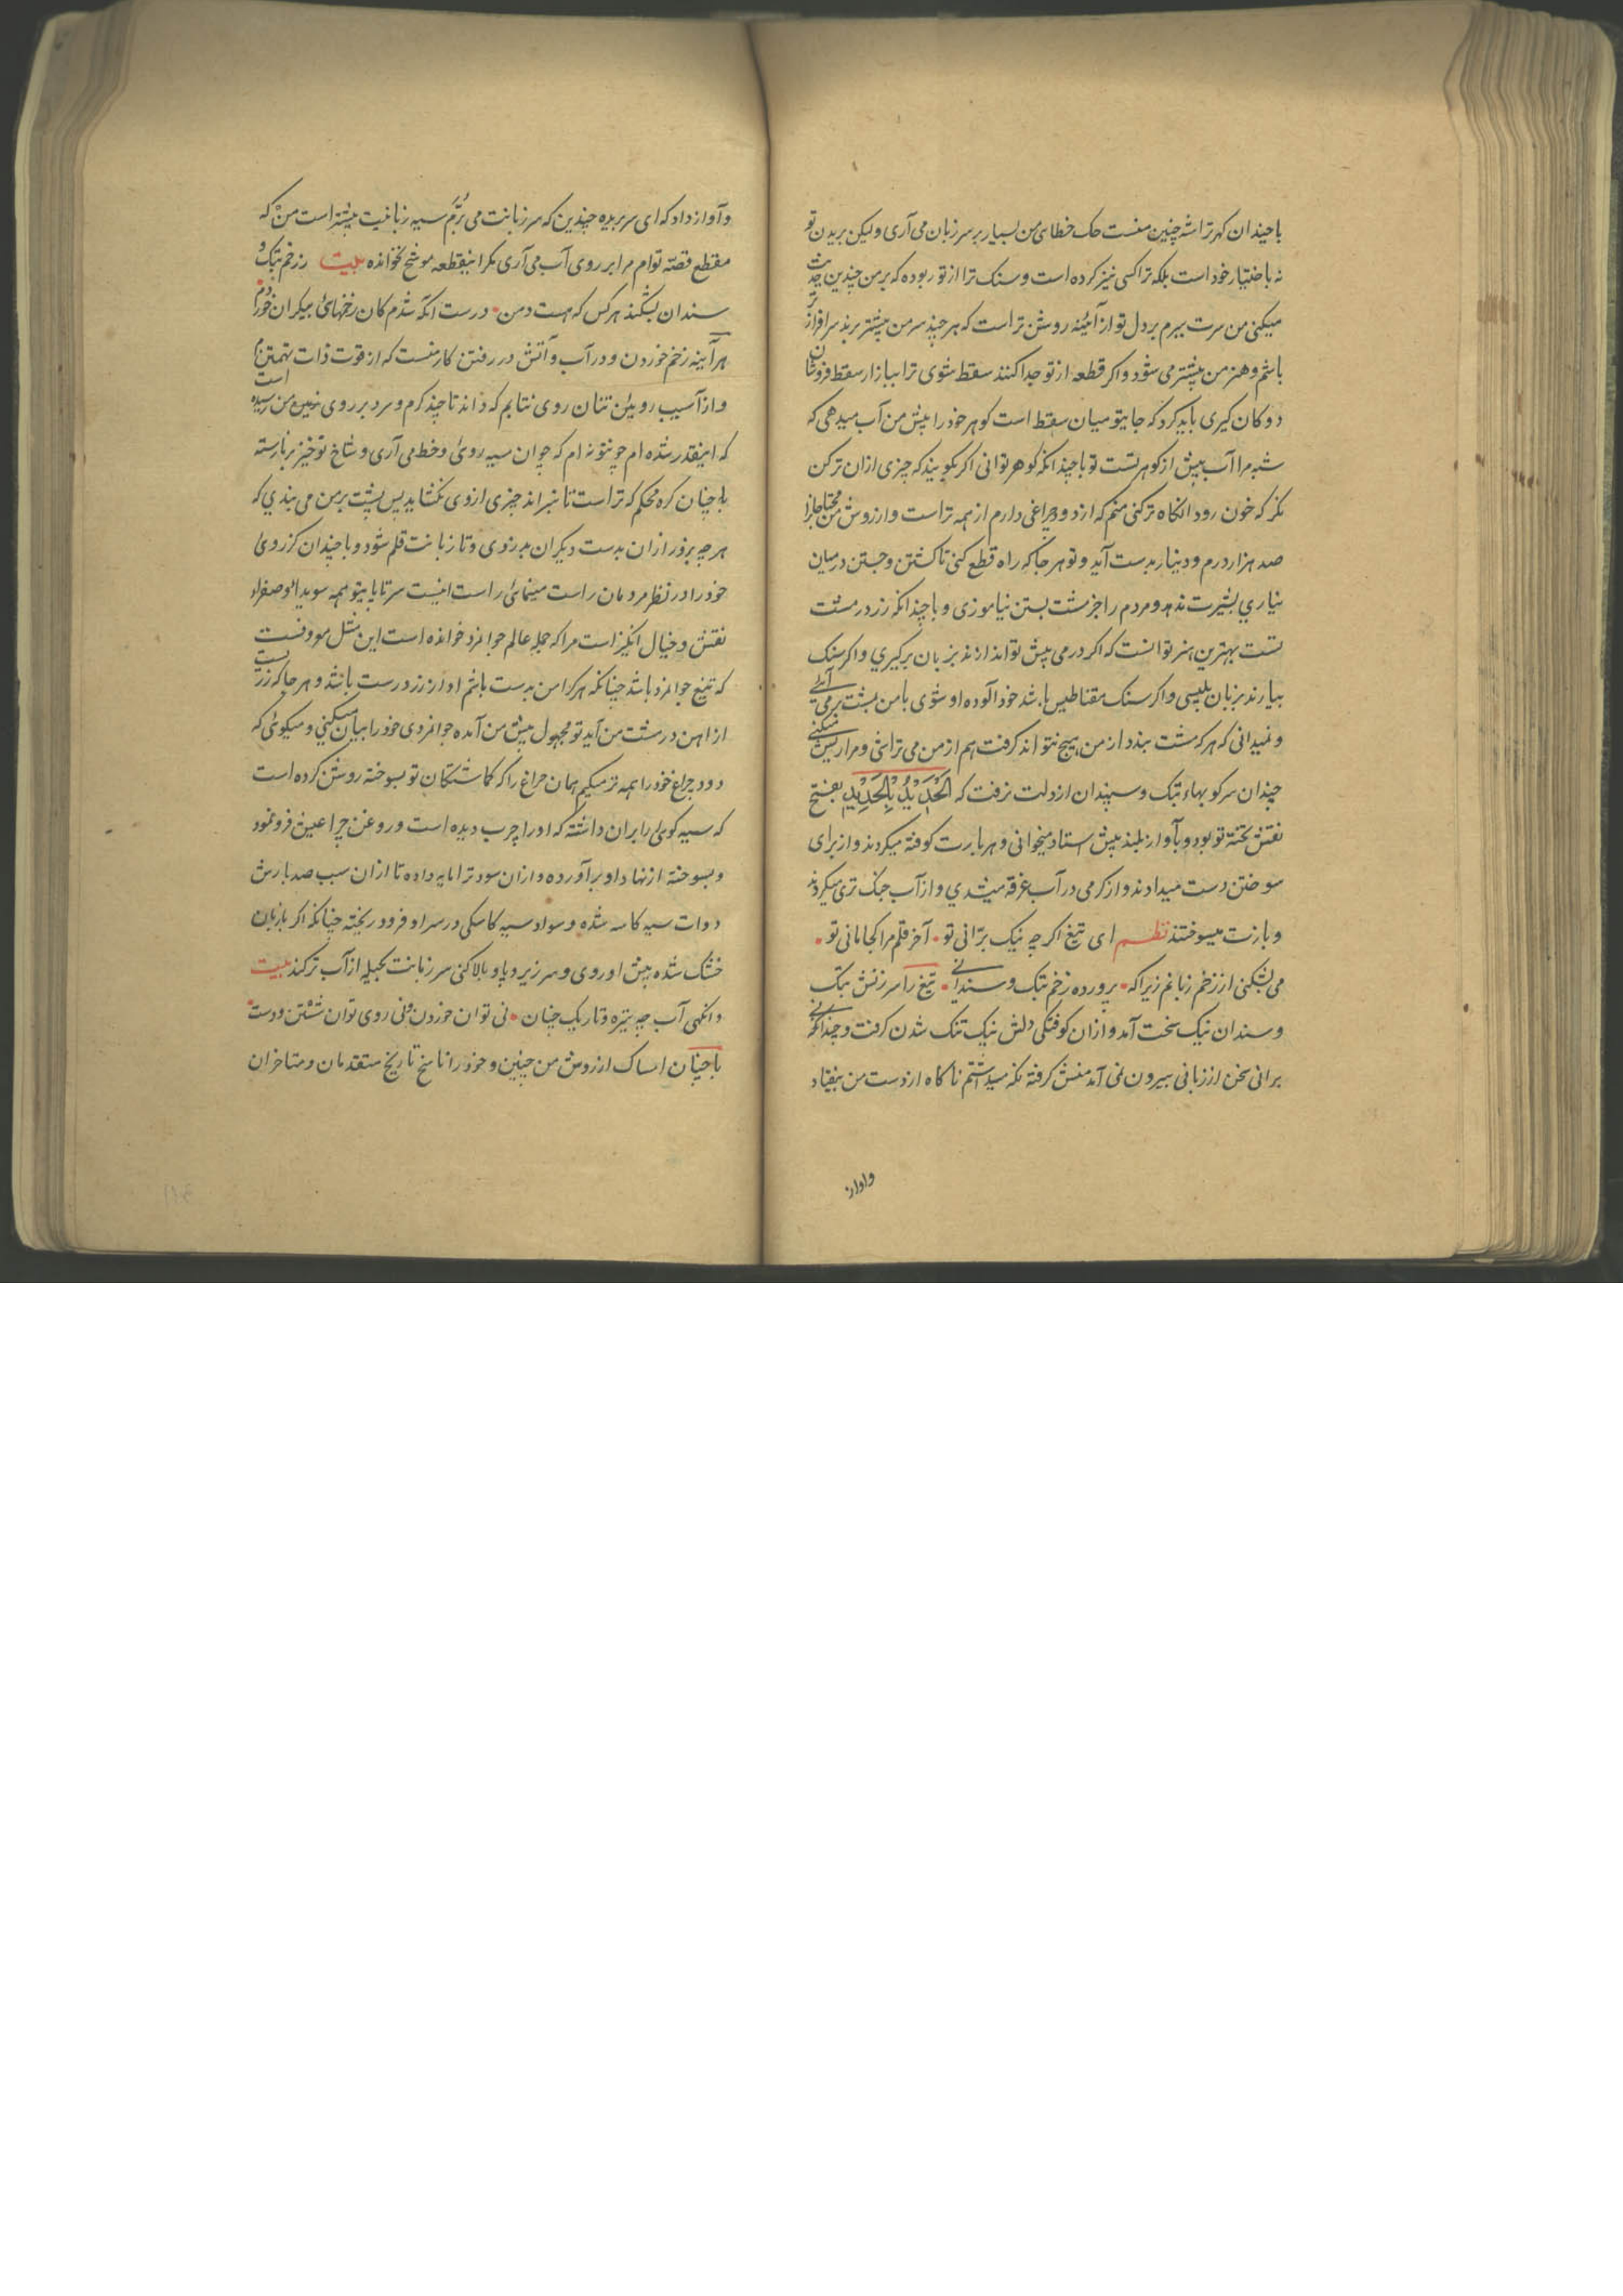 باچندان کهر تراشه چنین منست حک خطای من بسیار بر سر زبان می آری ولیکن بریدن تو
نه باختیار خود است بلکه ترا کسی نیز کرده است و سنک ترا از تو ربوده که بر من چندین حدت
میکنی من سرت ببرم بر دل تو از آئینه روشن تر است که هر چند سر من بیشتر برند سرافرازتر
باشم و هنر من بیشتر می شود و اکر قطعه از تو جدا کنند سقط شوی ترا ببازار سقط فروشان
دوکان کیری باید کرد که جایتو میان سقط است کوهر خود را پیش من آب میدهی که
شبه مرا آب پیش از کوهر تست تو باچندانکه کوهر توانی اکر بکویند که چیزی ازان ترکن
نکر که خون رود انکاه ترکنی منم که از دود چراغی دارم از همه تر است و از روش من محتاجانرا
صد هزار درم و دینار بدست آید و تو هر جا که راه قطع کنی تا کشتن و جستن در میان
نیاری بشیرت ندهد و مردم را جز مشت بستن نیاموزی و باچندانکه زر در مشت
تست بهترین هنر تو انست که اکر درمی پیش تو اندازند بزبان برکیری و اکر سنک
بیارند بزبان بلیسی و اکر سنک مقناطیس باشد خود آلوده او شوی با من بشت بر می آیی
و نمیدانی که هر که مشت بندد از من هیچ نتواند کرفت هم از من می تراشی و مرا ریش میکنی
چندان سرکوبهاء پتک و سندان از دلت نرفت که اَلْحَدِیْدُ بِالْحَدِیْدِ یفتح
نقش تخته تو بود و بآواز بلند پیش استاد میخوانی و هر بارت کوفته میکردند و از برای
سوختن دست میدادند و از کرمی در آب غرقه میشدی و از آب جنک تری میکردند
و بازت میسوختند نظم ای تیغ اکر چه نیک برّانی تو • آخر قلم مرا کجا مانی تو •
می بشکنی از زخم زبانم زیراکه • پرورده زخم پتک و سندانی • تیغ را سرزنش پتک
و سندان نیک سخت آمد و ازان کوفتکی دلش نیک تنک شدن کرفت و چندانکه
برانی سخن از زبانی بیرون نمی آمد منش کرفته نکه میداشتم ناکاه از دست من بیفتاد
واواز
و آواز داد که ای سر بریده چندین که سر زبانت می بُرّم سیه زبانیت بیشتر است من که
مقطع قصّه توام مرا بر روی آب می آری مکر اینقطعه موشح نخوانده بیت ز زخم پتک و
سندان بشکند هر کس که هست و من • درست انکه شدم کان زخمهای بیکران خوردم
هرآینه زخم خوردن و در آب و آتش در رفتن کار منست که از قوت ذات تهمتنم
و از آسیب رویین تنان روی نتابم که داند تا چند کرم و سرد بر روی زمین من رسیده است
که اینقدر شده ام چو تو نه ام که چوان سیه روی و خط می آری و شاخ تو خیز بر نارسته
باچنان کره محکم که تراست تا نبرند چیزی از وی نکشاید پس پشت بر من می بندی که
هر چه بزور ازان بدست دیکران بدزدی و تا زبانت قلم شود و باچندان کژروی
خود را در نظر مردمان راست مینمایی راست اینست سر تا پای تو همه سودا و صفرا و
نقش و خیال انکیز است مرا که جمله عالم جوانمرد خوانده است این مثل معروفست
که تیغ جوانمرد باشد چنانکه هر کرا من بدست باشم او را زر درست باشد و هر جا که زریست
از اهن درشت من آید تو مجهول پیش من آمده جوانمردی خود را بیان میکنی و میکوئی که
دود چراغ خود را همه تر میکنم همان چراغ را که کماشتکان تو بسوخته روشن کرده است
که سیه کوئی را بران داشته که او را چرب دیده است و روغن چراغین فرو نمود
و بسوخته از نهاد او برآورده و ازان سود ترا مایه داده تا ازان سبب صد بارش
دوات سیه کاسه شده و سواد سیه کاسکی در سر او فرو ریخته چنانکه اکر بازبان
خشک شده پیش او روی و سر زیر و پا و بالا کنی سر زبانت بحیله از آب ترکند بیت
وانکهی آب چه تیره و تاریک چنان • نی توان خوردن و نی روی توان شستن و دست •
باچنان امساک از روش من چنین و خود را ناسخ تاریخ متقدمان و متاخران